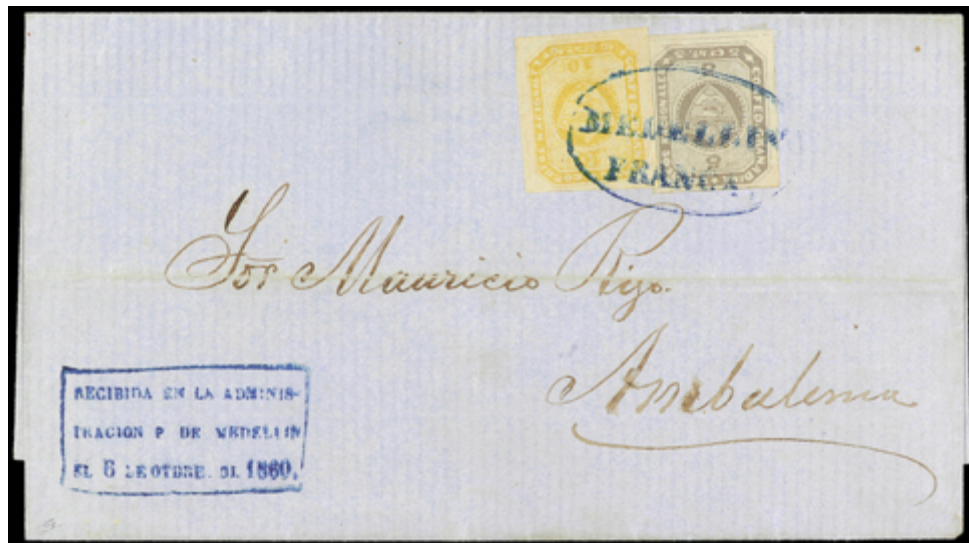 MEDELLIN
FRANCA
5 CENT.S
Sor. Mauricio Rizo.
Ambalema
RECIBIDA EN LA ADMINIS-
TRACION P DE MEDELLIN
EL 6 DE OTUBRE. DE 1860.